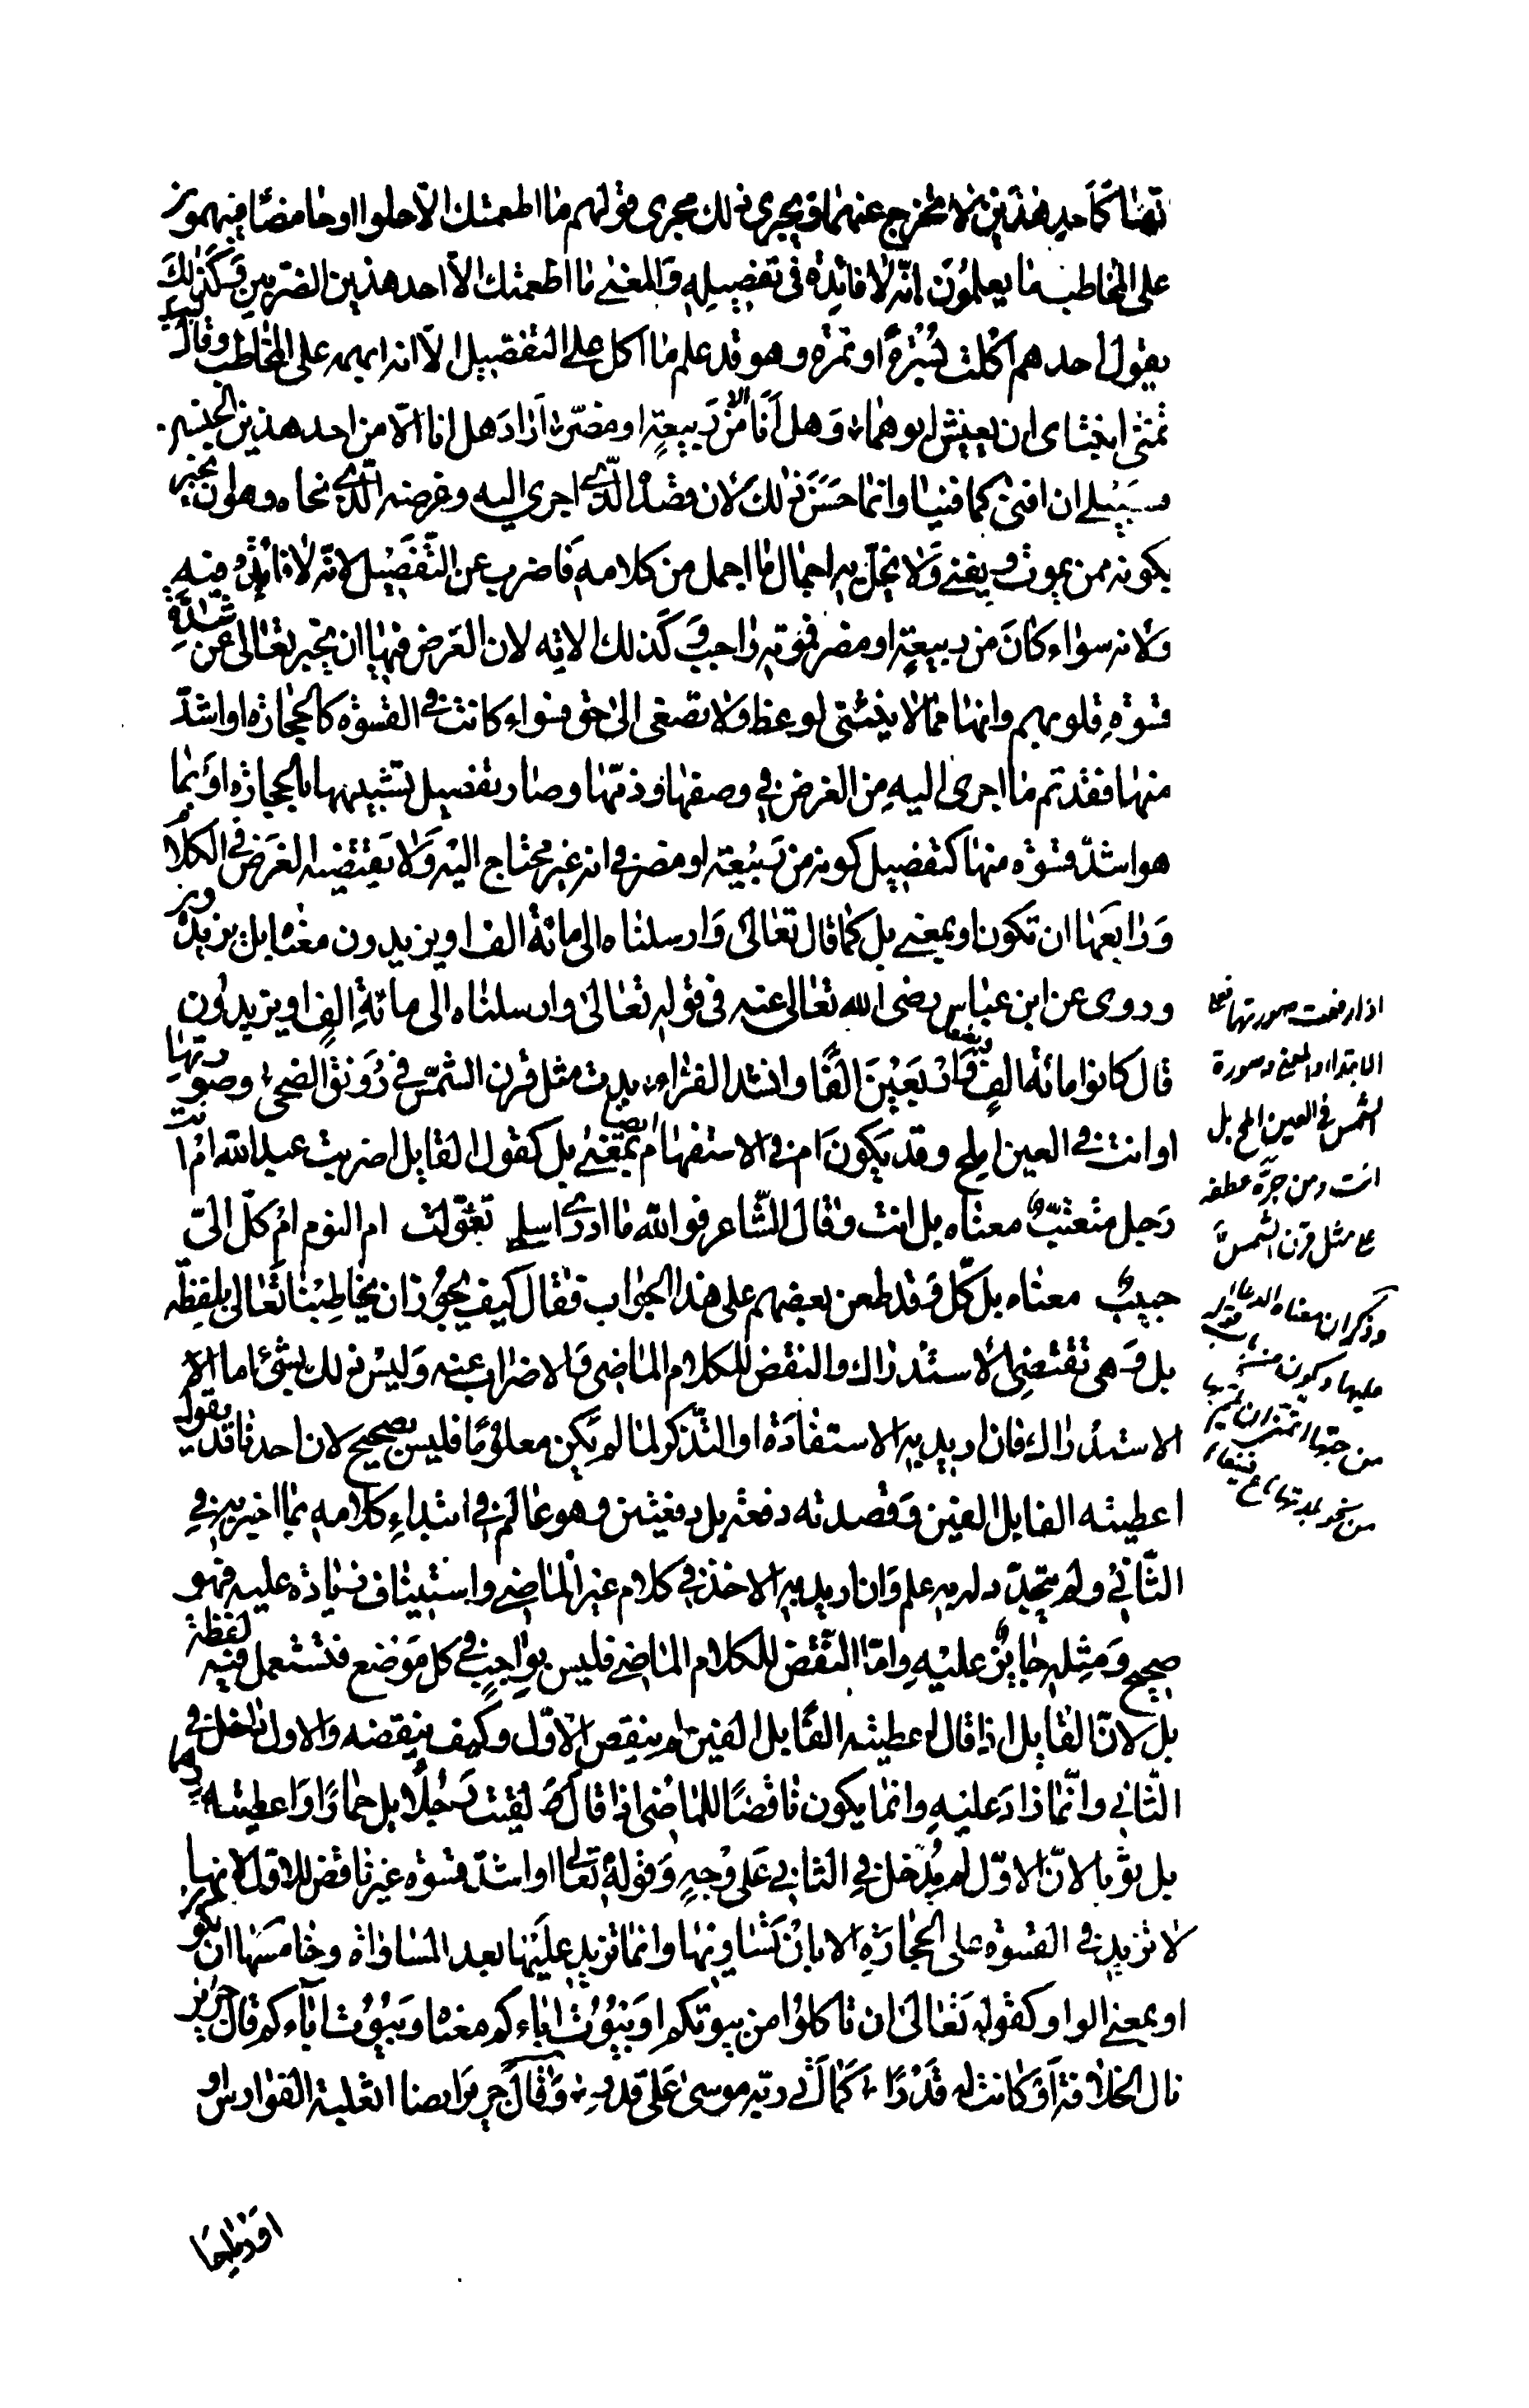 انها كاحد هذين لا تخرج عنهما ويجرى ذلك مجرى قولهم ما اطعمتك الا حلوا او حامضا فيبهمون
على المخاطب ما يعلمون انه لا فائدة فى تفصيله والمعنى ما اطعمتك الا احد هذين الضربين وكذلك
يقول احدهم اكلت بسرة او تمرة وهو قد علم ما اكل على التفصيل الا انه ابهمه على المخاطب وقال لبيد
تمنى ابنتاى ان يعيش ابوهما وهل انا الا من ربيعة او مضر اراد هل انا الا من احد هذين الجنسين
فسبيلى ان افنى كما فنيا وانما حسن ذلك لان قصده الذى اجرى اليه وغرضه الذى نحاه وهو ان يخبر
بكونه ممن يموت ويفنى ولا يخل به اجمال ما اجمل من كلامه فاضرب عن التفصيل لانه لا فائدة فيه
ولانه سواء كان من ربيعة او مضر فموته واجب وكذلك الاية لان الغرض فيها ان يخبر تعالى عن شدة
قسوة قلوبهم وانها مما لا ينثنى لوعظ ولا تصغى الى حق فسواء كانت فى القسوة كالحجارة او اشد
منها فقد تم ما اجرى اليه من الغرض فى وصفها وذمها وصار تفصيل تشبيهها بالحجارة او بما
هو اشد قسوة منها كتفصيل كونه من ربيعة او مضر فى انه غير محتاج اليه ولا يقتضيه الغرض فى الكلام
ورابعها ان تكون او بمعنى بل كما قال تعالى وارسلناه الى مائة الف او يزيدون معناه بل يزيدون
وروى عن ابن عباس رضى الله تعالى عنه فى قوله تعالى وارسلناه الى مائة الف او يزيدون
قال كانوا مائة الف وبضعة واربعين الفا وانشد الفراء بدت مثل قرن الشمس فى رونق الضحى وصورتها
او انت فى العين املح وقد يكون ام فى الاستفهام ايضا بمعنى بل كقول القايل اضربت عبد الله ام انت
رجل متعنت معناه بل انت وقال الشاعر فوالله ما ادرى اسلمى تغولت ام النوم ام كل الى
حبيب معناه بل كل وقد طعن بعضهم على هذا الجواب فقال كيف يجوز ان يخاطبنا تعالى بلفظه
بل وهى تقتضى الاستدراك والنقض للكلام الماضى والاضراب عنه وليس ذلك بشئ اما
الاستدراك فان اريد به الاستفادة او التذكر لما لم يكن معلوما فليس بصحيح لان احدنا قد يقول
اعطيته الفا بل الفين وقصدته دفعة بل دفعتين وهو عالم فى ابتداء كلامه بما اخبر به فى
الثانى ولم يتجدد له به علم وان اريد به الاخذ فى كلام غير الماضى واستيناف زيادة عليه فهو
صحيح ومثله جايز عليه واما النقض للكلام الماضى فليس بواجب فى كل موضع تستعمل فيه لفظة
بل لان القايل اذا قال اعطيته الفا بل الفين لم ينقض الاول وكيف ينقضه والاول داخل فى
الثانى وانما زاد عليه وانما يكون ناقضا للماضى اذا قال لقيت رجلا بل حمارا واعطيته درهما
بل ثوبا لان الاول لم يدخل فى الثانى على وجه وقوله تعالى او اشد قسوة غير ناقض للاول لانها
لا تزيد فى القسوة على الحجارة الا بان تساويها وانما تزيد عليها بعد المساواة وخامسها ان يكون
او بمعنى الواو كقوله تعالى ان تاكلوا من بيوتكم او بيوت اباءكم معناه وبيوت ابآءكم قال جرير
نال الخلافة او كانت له قدرا كما اتى ربه موسى على قدر وقال جرير ايضا اثعلبة الفوارس او
اذا رفعت صورتها فعلى
الابتداء والمعنى وصورة
الشمس فى العين املح بل
انت ومن جره عطفه
على مثل قرن الشمس
وذكر ان معناه
عليها وتكون